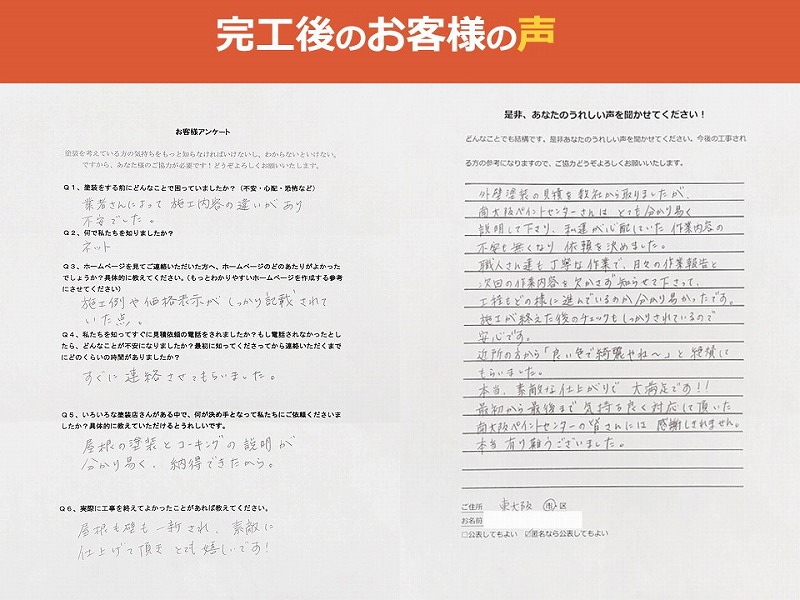 完工後のお客様の声
お客様アンケート
塗装を考えている方の気持ちをもっと知らなければいけないし、わからないといけない。
ですから、あなた様のご協力が必要です！どうぞよろしくお願いいたします。
Q1、塗装をする前にどんなことで困っていましたか？（不安・心配・恐怖など）
業者さんによって 施工内容の違いがあり
不安でした。
Q2、何で私たちを知りましたか？
ネット
Q3、ホームページを見てご連絡いただいた方へ、ホームページのどのあたりがよかった
でしょうか？具体的に教えてください。（もっとわかりやすいホームページを作成する参考
にさせてください）
施工例や価格表示が しっかり記載されて
いた点。
Q4、私たちを知ってすぐに見積依頼の電話をされましたか？もし電話されなかったとし
たら、どんなことが不安になりましたか？最初に知ってくださってから連絡いただくまで
にどのくらいの時間がありましたか？
すぐに連絡させてもらいました。
Q5、いろいろな塗装店さんがある中で、何が決め手となって私たちにご依頼くださいま
したか？具体的に教えていただけるとうれしいです。
屋根の塗装とコーキングの説明が
分かり易く、納得できたから。
Q6、実際に工事を終えてよかったことがあれば教えてください。
屋根も壁も一新され、素敵に
仕上げて頂き とても嬉しいです!
是非、あなたのうれしい声を聞かせてください！
どんなことでも結構です。是非あなたのうれしい声を聞かせてください。今後の工事され
る方の参考になりますので、ご協力どうぞよろしくお願いいたします。
外壁塗装の見積を数社から取りましたが、
南大阪ペイントセンターさんは とても分かり易く
説明して下さり、私達が心配していた 作業内容の
不安も無くなり 依頼を決めました。
職人さん達も丁寧な作業で、日々の作業報告と
次回の作業内容を欠かさず知らせて下さって、
工程もどの様に進んでいるのか 分かり易かったです。
施工が終えた後のチェックもしっかりされているので
安心です。
近所の方から「良い色で綺麗やね〜」と絶賛して
もらいました。
本当、素敵な仕上がりで 大満足です!!
最初から最後まで 気持ち良く対応して頂いた
南大阪ペイントセンターの皆さんには 感謝しきれません。
本当有り難うございました。
ご住所 東大阪 市・区
お名前
□公表してもよい ☑匿名なら公表してもよい